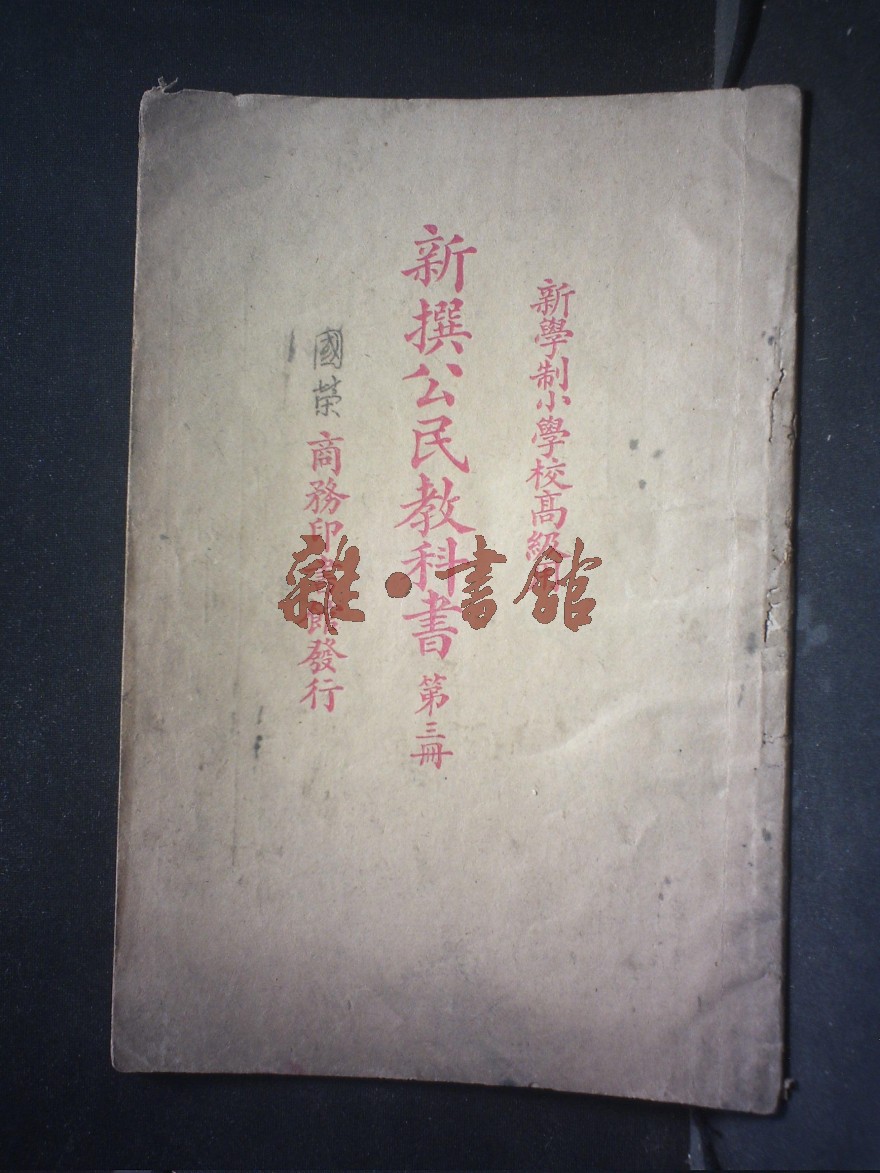 新學制小學校高級用
新撰公民教科書 第三冊
國榮
商務印書館發行
雜·書館